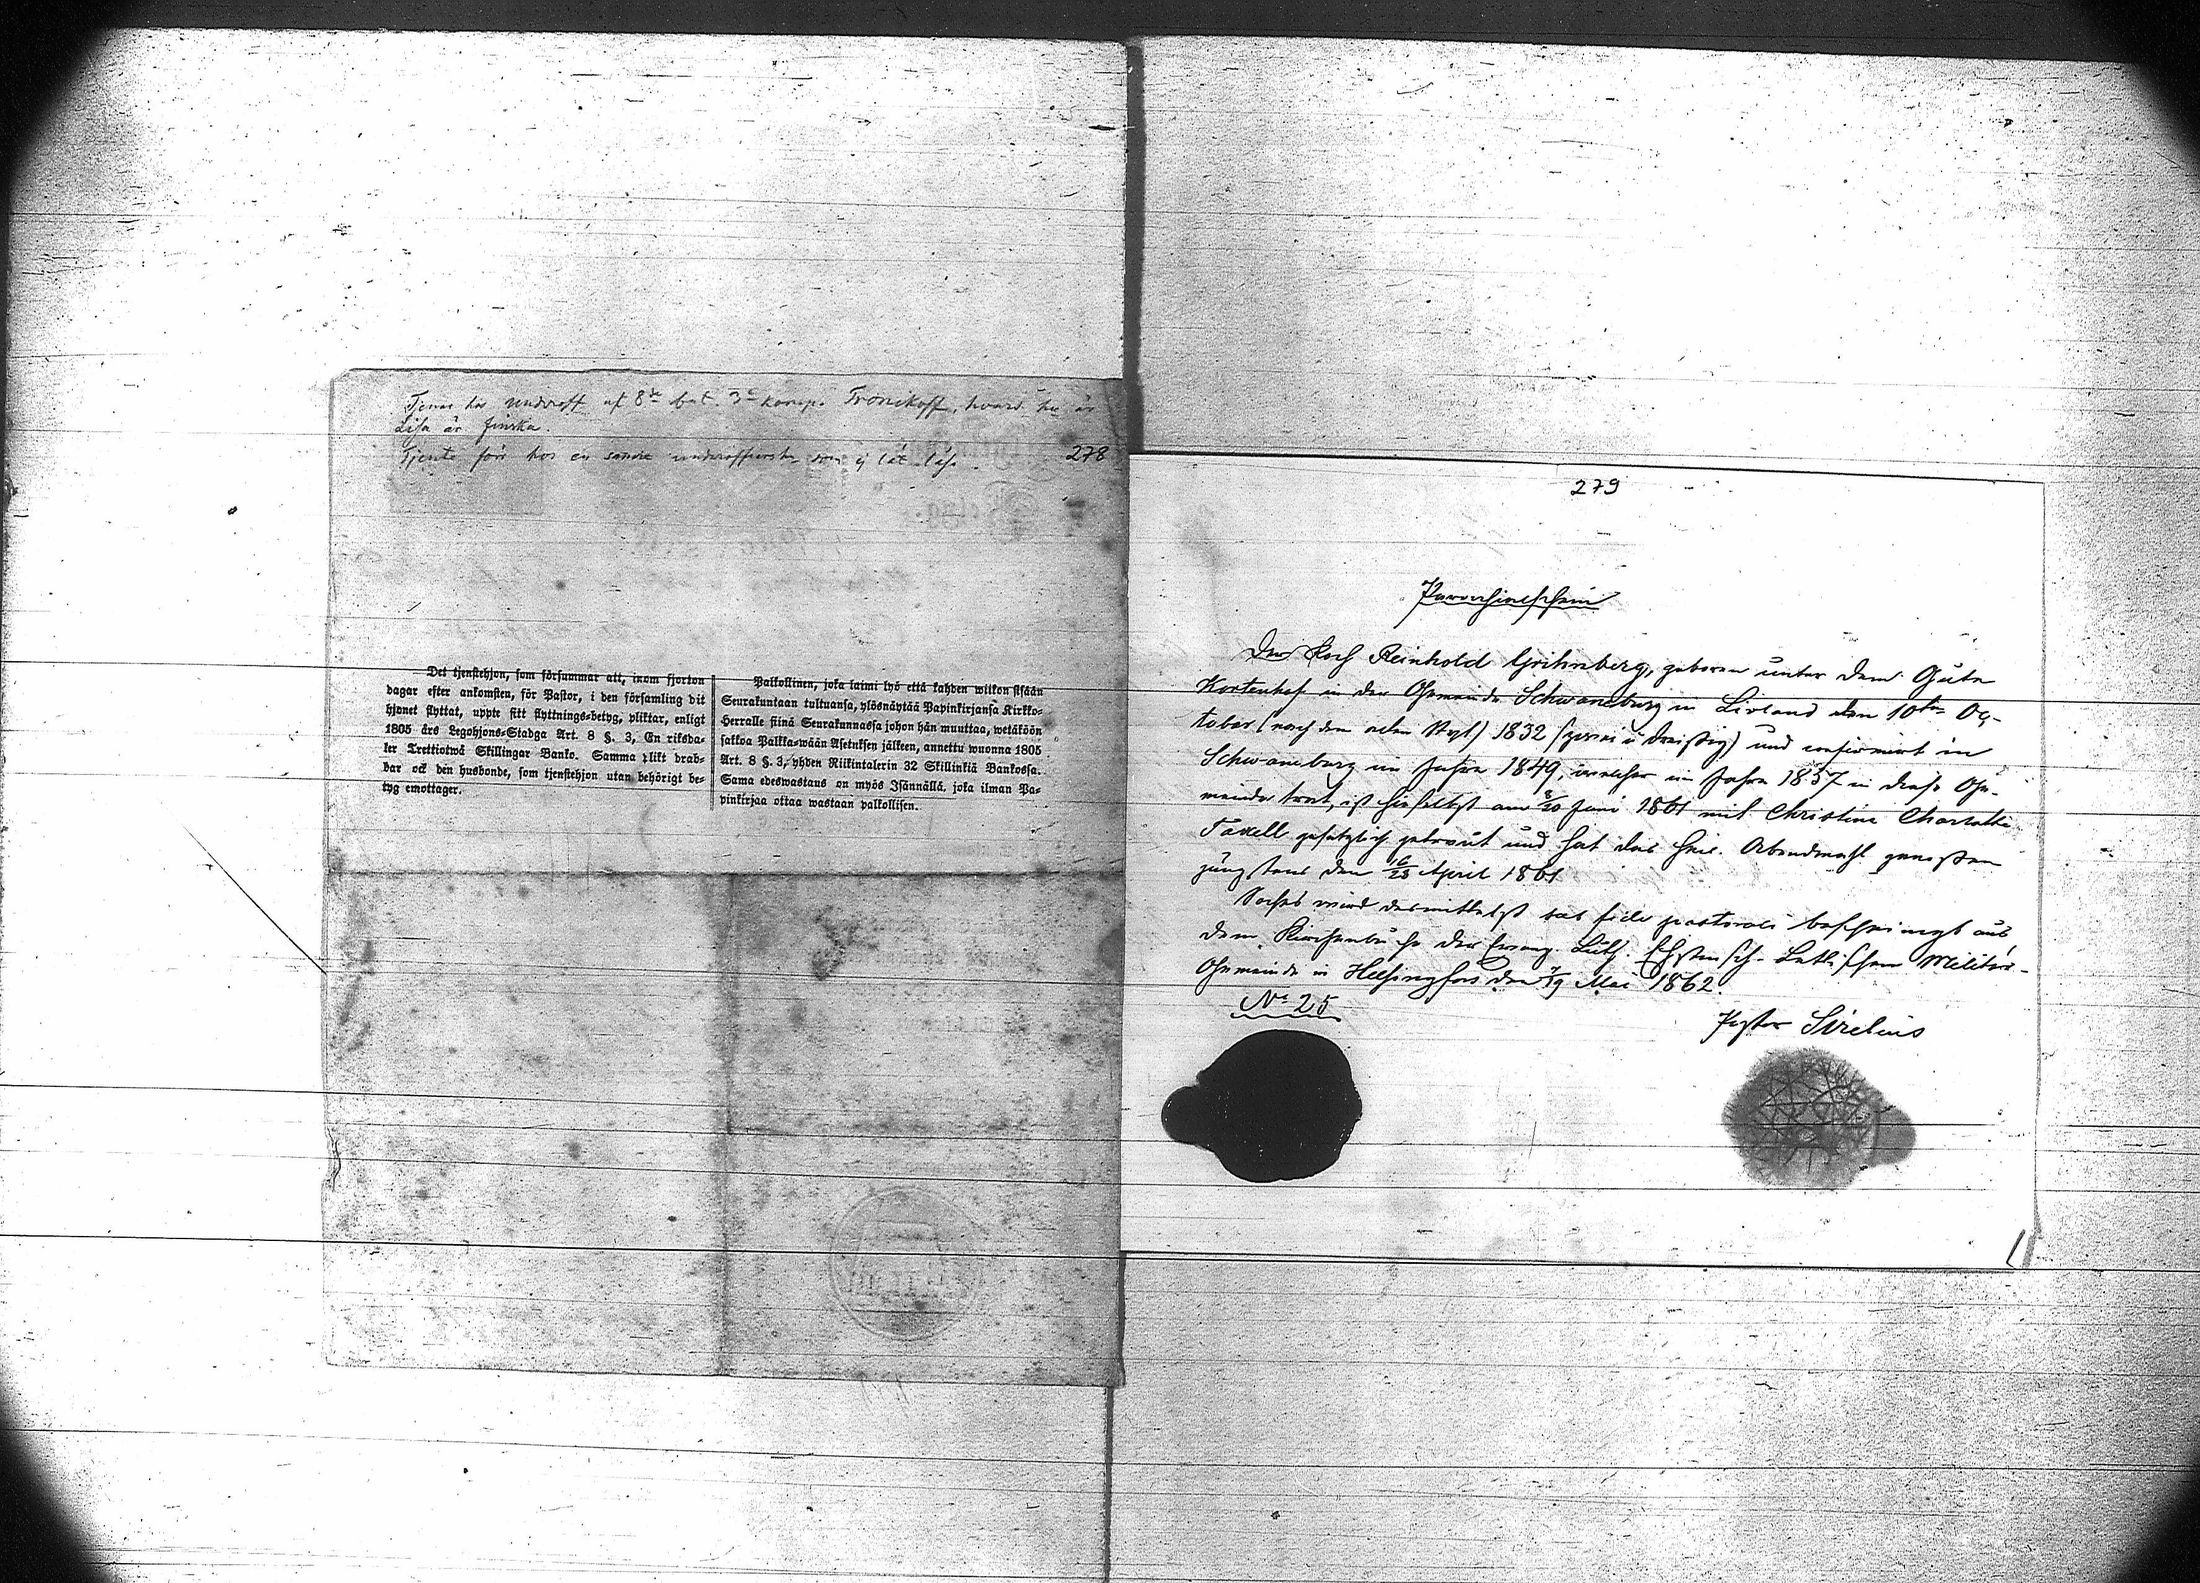 Tjenar hos underoff af 8de bat. 3e komp. Tronikoff, hvars hu är
Lisa är finska.
Tjente förr hos en annan underofficer som ej lät läsa.
278
Det tjenstehjon, som försummar att, inom fjorton
dagar efter ankomsten, för Pastor, i den församling dit
hjonet flyttat, uppte sitt flyttnings-betyg, pliktar, enligt
1805 års Legohjons-Stadga Art. 8 §. 3, En riksda-
ler Trettiotwå Skillingar Banko. Samma plikt drab-
bar ock den husbonde, som tjenstehjon utan behörigt be-
tyg emottager.
Palkollinen, joka laimi lyö että kahden wiikon sisään
Seurakuntaan tultuansa, ylösnäytää Papinkirjansa Kirkko-
Herralle siinä Seurakunnassa johon hän muuttaa, wetäköön
sakkoa Palkka-wään Asetuksen jälkeen, annettu wuonna 1805
Art. 8 §. 3, yhden Riikintalerin 32 Skillinkiä Bankossa.
Sama edeswastaus on myös Isännällä, joka ilman Pa-
pinkirjaa ottaa wastaan palkollisen.
279
Parochialschein
Der Koch Reinhold Grihnberg, geboren unter dem Gute
Kortenhof in der Gemeinde Schwaneburg in Livland den 10ten Oc-
tober (nach dem alten Styl) 1832 (zwei u dreißig) und confirmirt in
Schwaneburg im Jahre 1849, welcher im Jahre 1857 in diese Ge-
meinde trat, ist hieselbst am 8/20 Juni 1861 mit Christina Charlotta
Taxell gesetzlich getraut und hat das heil. Abendmahl genossen
jüngstens den 16/28 April 1861
Solches wird desmittelst sub fide pastorali bescheinigt aus
dem Kirchenbuche der Evang. Luth. Ehstnisch-Lettischen Militär-
Gemeinde in Helsingfors den 7/19 Mai 1862.
No 25
Pastor Sirelius